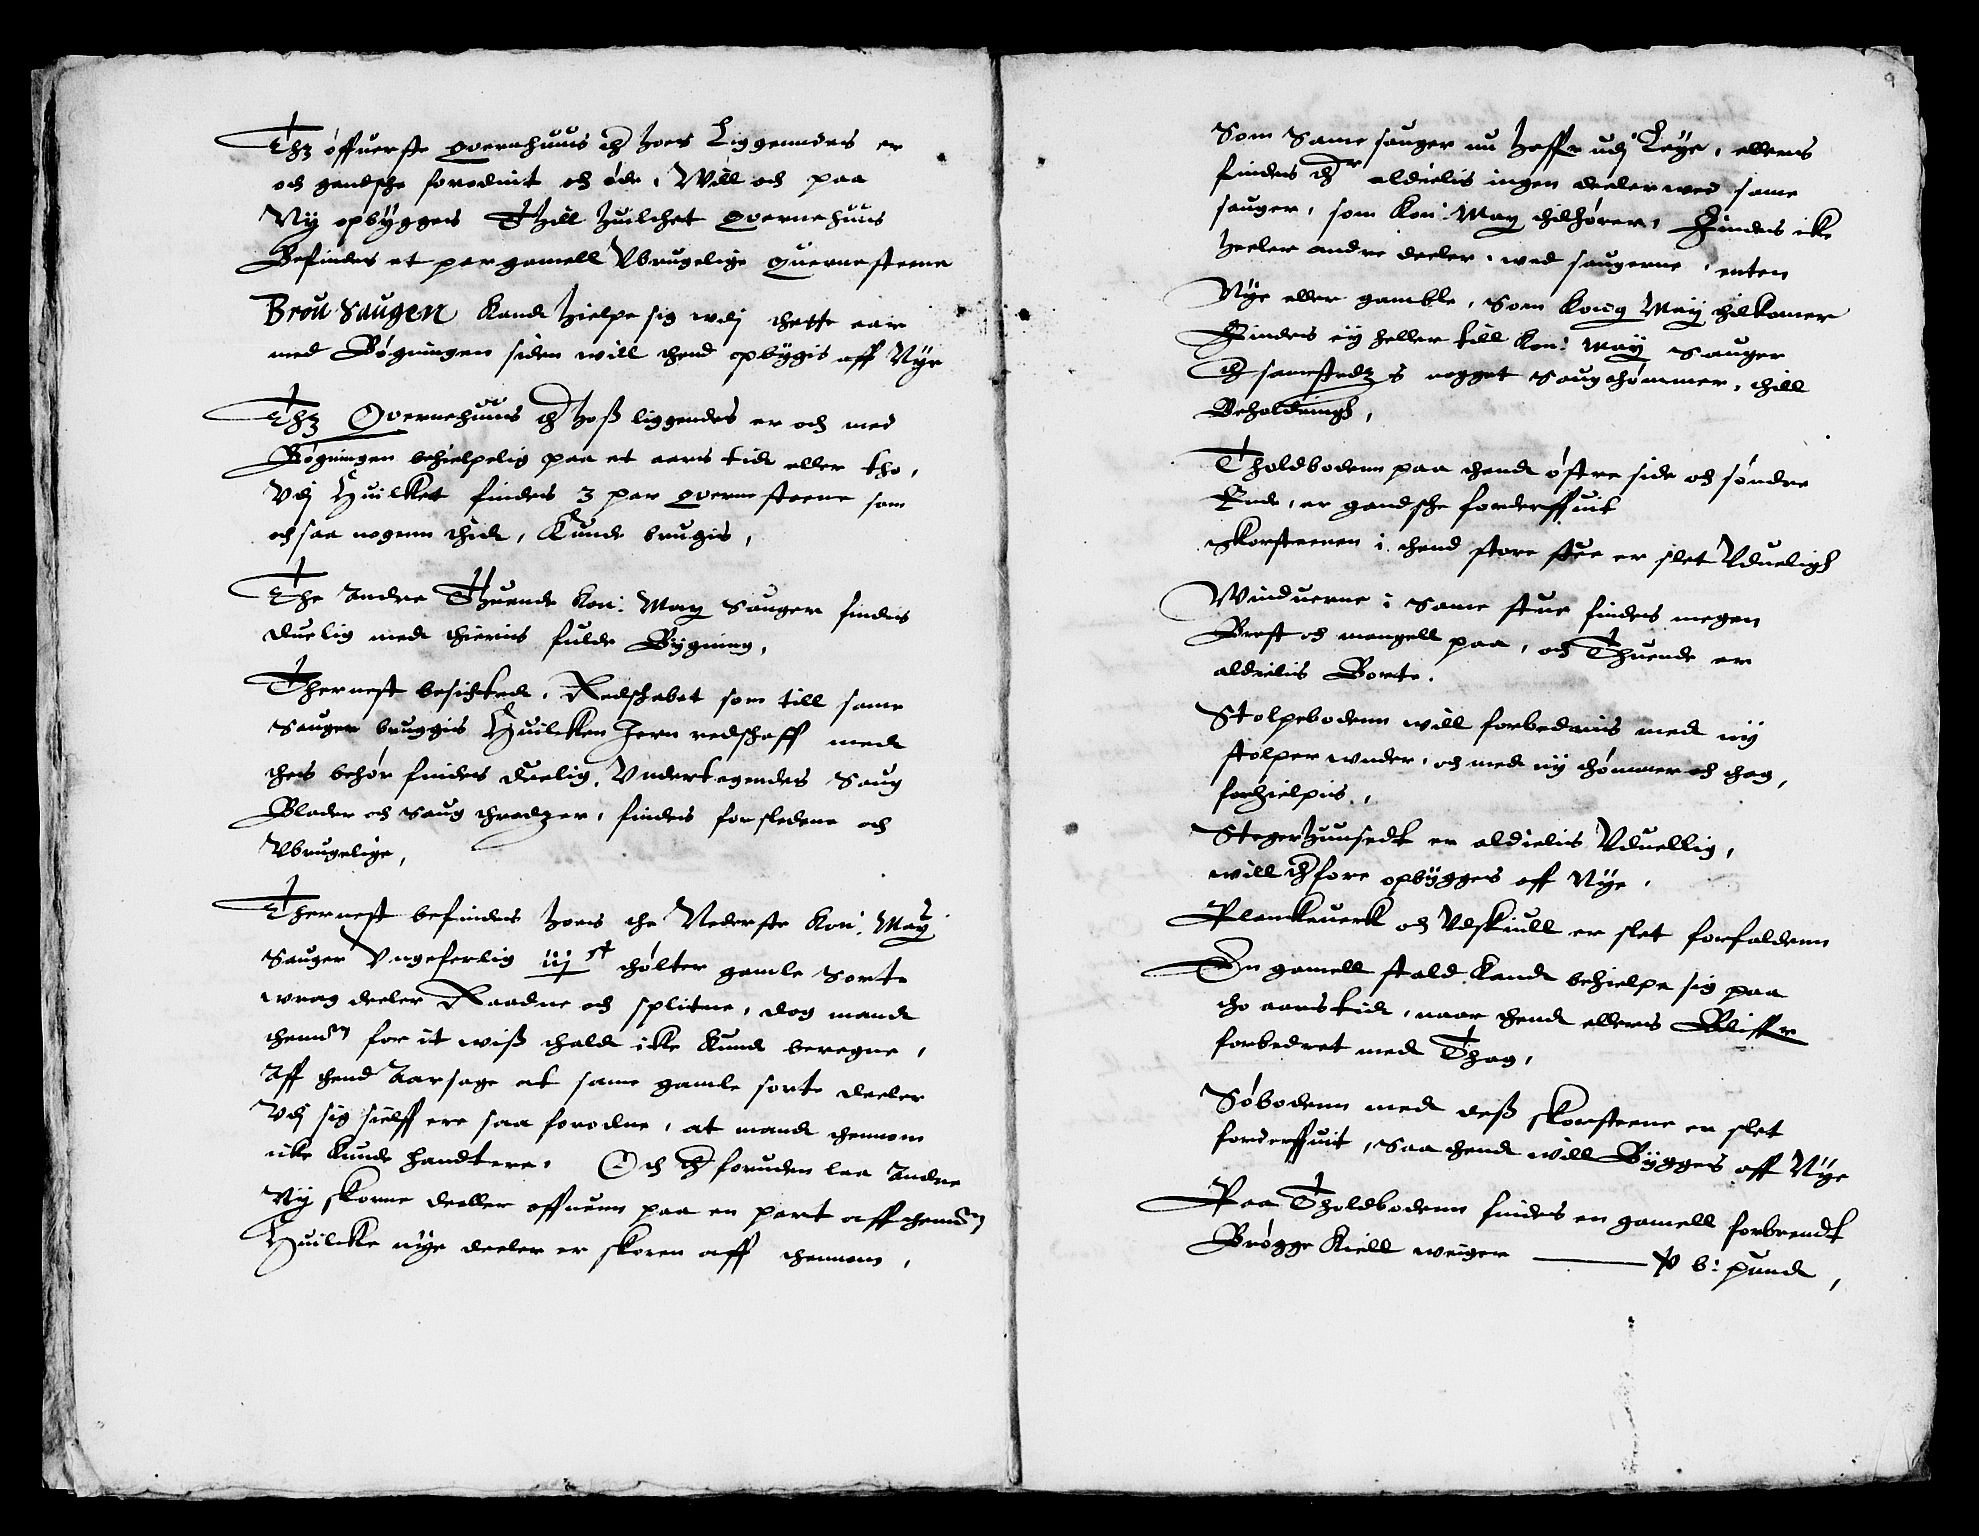 Thz øffuerste qvernhuus dr hoes Liggenndes er
och gandsche forodnit och øde, Will och paa
Ny opbÿgges Thill huilchet qvernehuus
Befindes et par gamell Vbrugelige querne steene
Brou Saugen Kand hielpe sig wdj thette aar
med Bøgningen siden will thend opbÿgis aff Nÿe
Thz Qvernehuus dr hoß liggendes er och med
Bøgningen behielpelig paa et aars tid eller tho,
Vdj Huilket findes 3 par qverne steene som
och saa nogenn thid, Kunde brugis,
The Andre Thuende Kon: May Sauger findes
duelig med thieris fulde Bygning,
Thernest besichtede, Redschabet som till same
Sauger bruggis Huilcken Jern redschaff med
thes behør findes duelig, Vndertagendes Saug
Blader och Saug thradzer, findes forsledene och
Vbrugelige,
Thernest befindes hoes the Nederste Kon: May
Sauger Vngeferlig iij st tholter gamle Sorte
wrag deeler Raadne och splitne, dog mand
thennom for it wiß thald ikke Kund beregne,
Aff thend Aarsage at same gamle sorte deeler
Vdj sig sielff ere saa forodne, at mand thennom
icke Kunde handtere, Och dr foruden laa Andre
Ny skorne deeller offuenn paa en part aff thennom
Huilcke nÿe deeler er skoren aff thennom,
9
Som Same sauger nu haffr udj Leÿe, ellers
findes dr aldielis ingen deeler wed same
sauger, som Kon: May thilhører, Findes ike
heeler andre deeler, wed saugerne, enten
Nÿe eller gamble, som Kong May thilkomer
Findes eÿ heller till Kon: May Sauger
dr samestedz nogget Saugthømmer, thill
Beholdningh,
Tholdbodenn paa thend østre side och søndre
Ende, er gandsche forderffuit
Skorsteenen i thend store stue er slet Vdueligh
Winduerne i Same stue findes megen
Brøst och mangell paa, och Thuende er
aldielis Borte.
Stolpebodenn will forbedris med nÿ
stolper wnder, och med nÿ thømmer och thag,
forhielpis,
Stegerhuusedt er aldielis Vduellig,
will dr fore opbÿgges aff Nÿe,
Planckeuerk och Vdskiull er slet forfaldenn
En gamell stald Kand behielpe sig paa
tho aars tid, naar thend ellers Bliffr
forbedret med Thag,
Søbodenn med deß skorsteene er slet
forderffuit, saa thend will Bÿgges aff Nÿe
Paa Tholdbodenn findes en gamell forbrendt
Brøgge Kiell weiger ——— v b: pund,